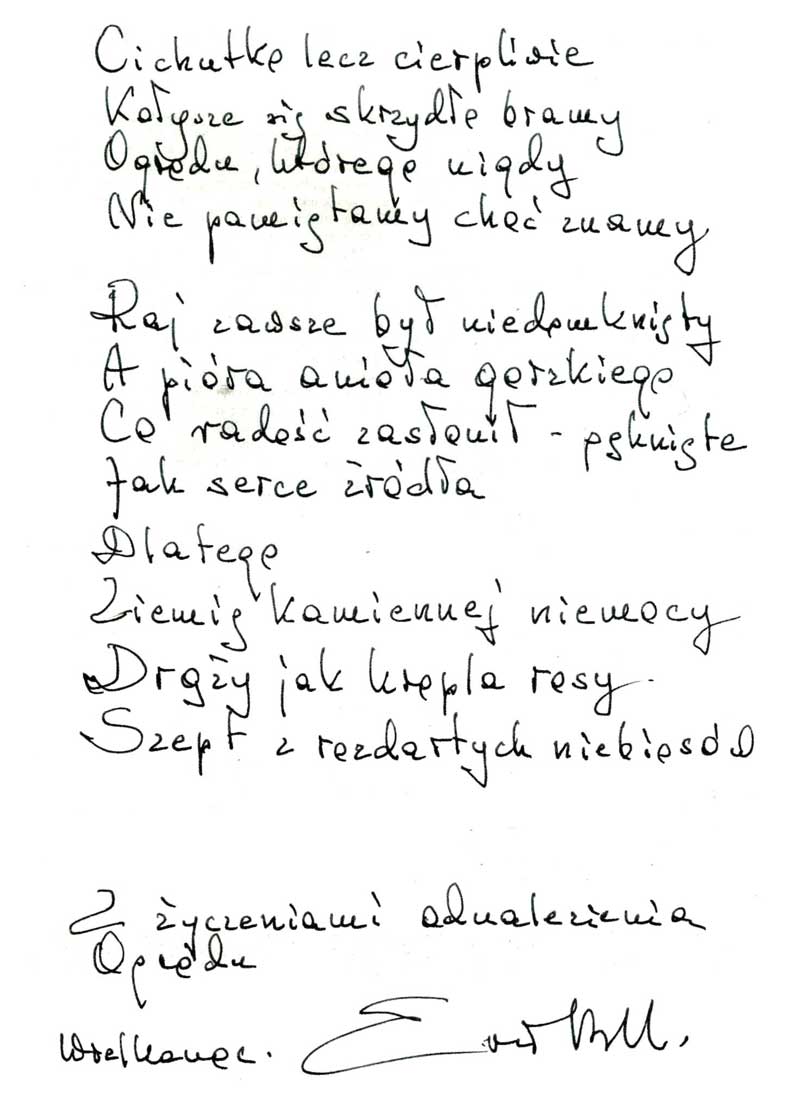 Cichutko lecz cierpliwie
Kołysze się skrzydło bramy
Ogrodu, którego nigdy
Nie pamiętamy choć znamy
Raj zawsze był niedomknięty
A pióra anioła gorzkiego
Co radość zasłonił - pęknięte
Jak serce źródła
Dlatego
Ziemię kamiennej niemocy
Drąży jak kropla rosy.
Szept z rozdartych niebiosów
Z życzeniami odnalezienia
Ogrodu
Wielkanoc.